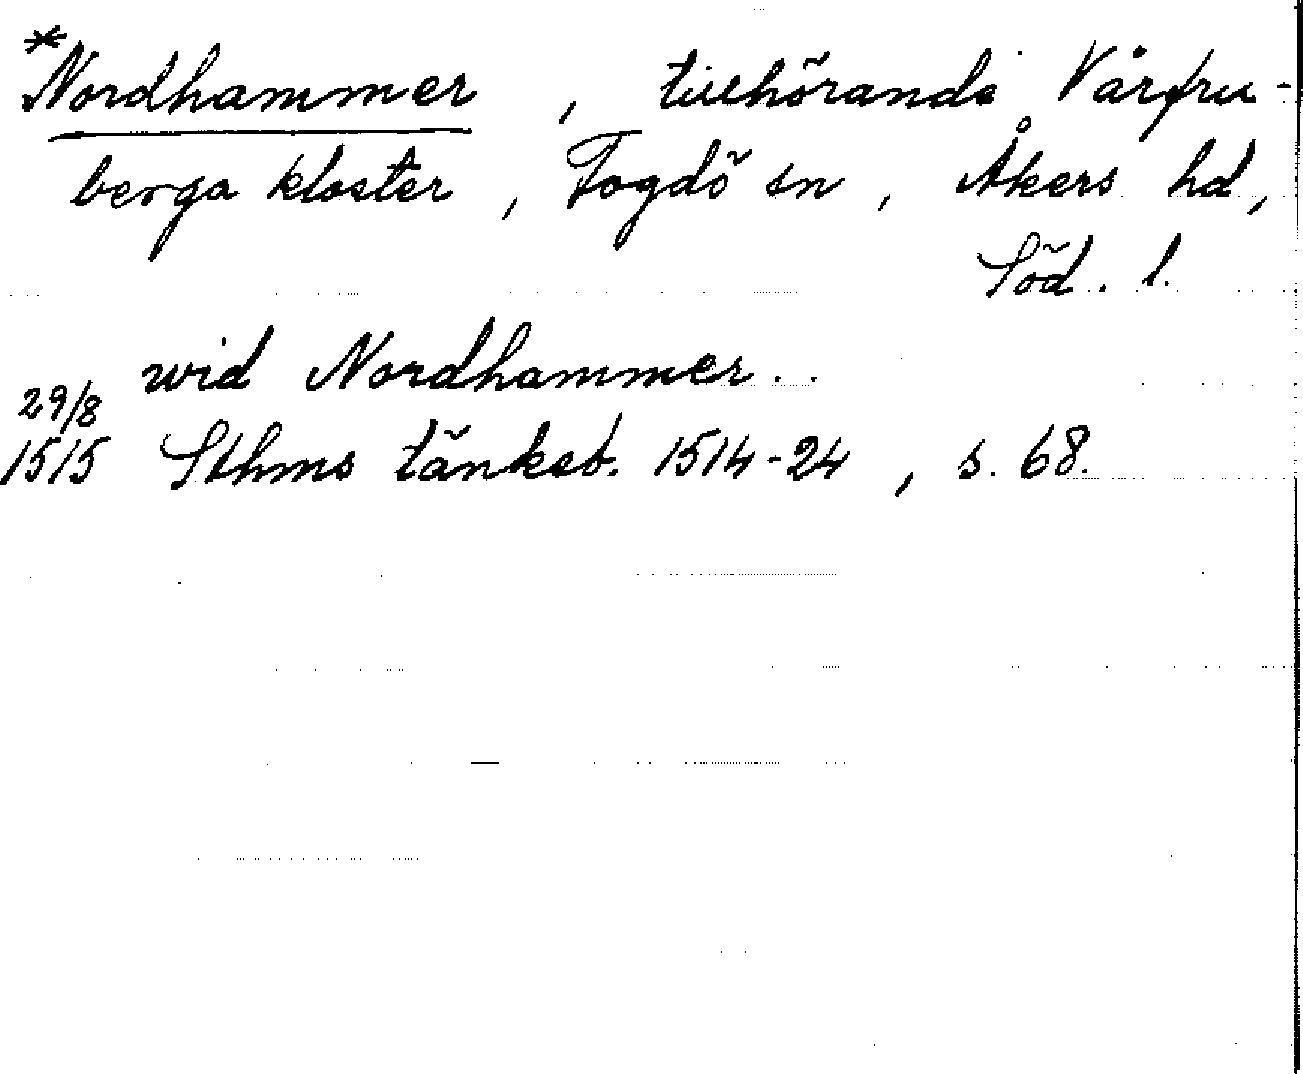 *Nordhammer, tillhörande Vårfru-
berga kloster, Fogdö sn, Åkers hd,
Söd. l.
wid Nordhammer..
29/8
1515 Sthms tänkeb. 1514-24, s. 68.